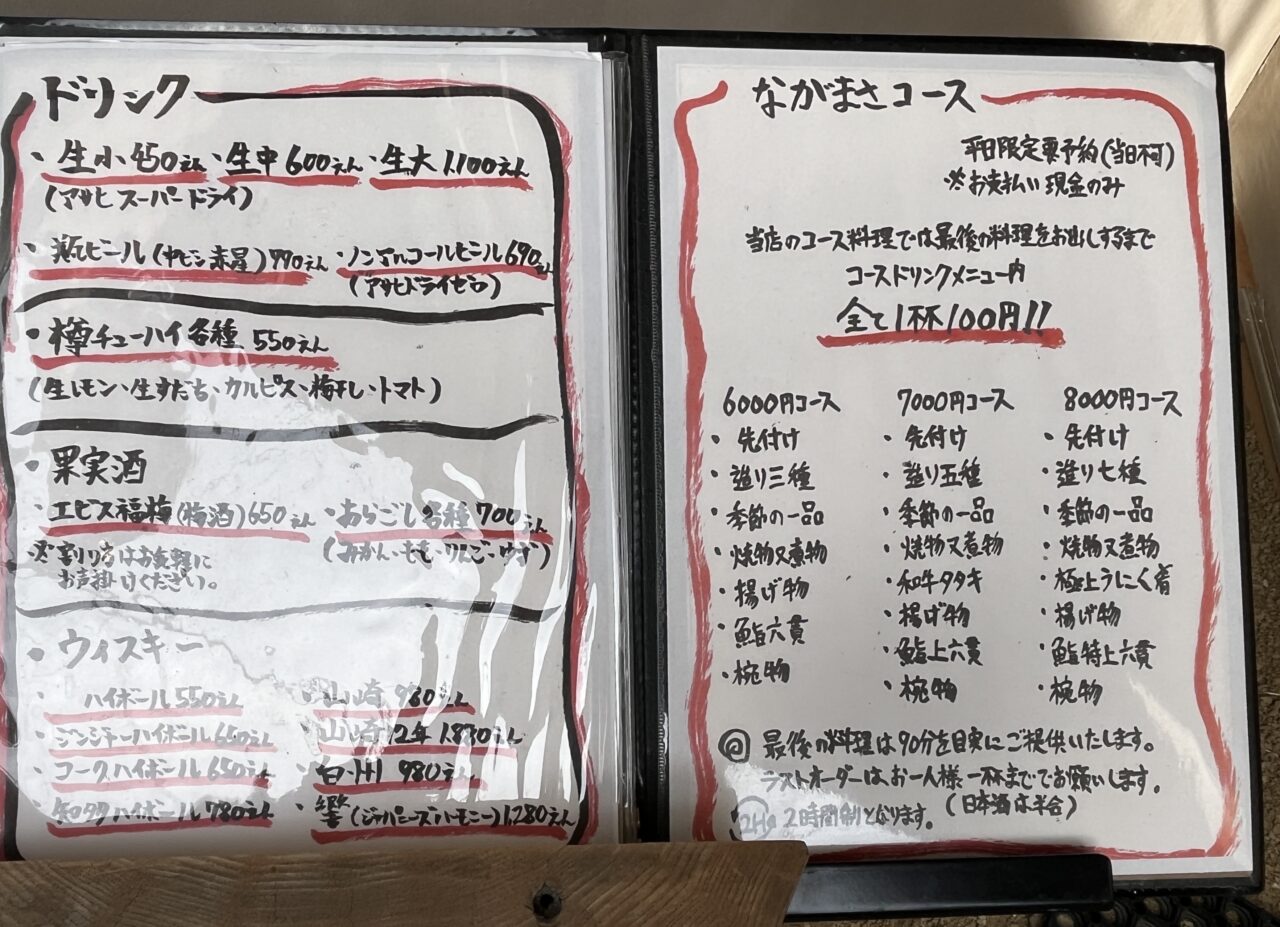 ドリンク
・生小450えん ・生中600えん ・生大1,100えん
(アサヒスーパードライ)
・瓶ビール(サッポロ赤星)790えん ・ノンアルコールビール690えん
(アサヒドライゼロ)
・樽チューハイ各種 550えん
(生レモン・生すだち・カルピス・梅干し・トマト)
・果実酒
・エビス福梅(梅酒)650えん ・あらごし各種700えん
※割り方はお気軽に (みかん・もも・りんご・ゆず)
お声掛けください。
・ウィスキー
・ハイボール550えん ・山崎980えん
・ジンジャーハイボール660えん ・山崎12年1,830えん
・コークハイボール650えん ・白州980えん
・知多ハイボール780えん ・響(ジャパニーズハーモニー)1,280えん
ながまさコース
平日限定要予約(当日不可)
※お支払い現金のみ
当店のコース料理では最後の料理をお出しするまで
コースドリンクメニュー内
全て1杯100円!!
6000円コース 7000円コース 8000円コース
・先付け ・先付け ・先付け
・造り三種 ・造り五種 ・造り七種
・季節の一品 ・季節の一品 ・季節の一品
・焼物又煮物 ・焼物又煮物 ・焼物又煮物
・揚げ物 ・和牛タタキ ・極上うにく肴
・鮨六貫 ・揚げ物 ・揚げ物
・椀物 ・鮨上六貫 ・鮨特上六貫
・椀物 ・椀物
◎最後の料理は90分を目安にご提供いたします。
ラストオーダーは、お一人様一杯まででお願いします。
(日本酒は半合)
2H 2時間制となります。